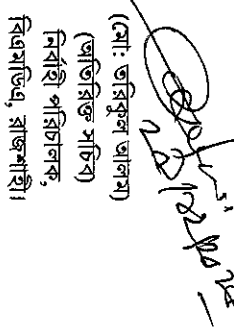 (মোঃ তরিকুল আলম)
(অতিরিক্ত সচিব)
নির্বাহী পরিচালক,
বিএমডিএ, রাজশাহী।